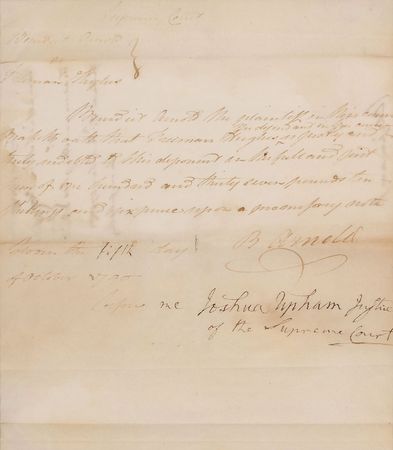 Supreme Court
Benedict Arnold
Freeman Hughes
Benedict Arnold the plaintiff in this
maketh oath that Freeman Hughes is justly and
truly indebted to this deponent in the full and just
sum of one hundred and thirty seven pounds ten
shillings and six pence upon a promissory note
Sworn the fifth day
B Arnold
of October
before me Joshua Upham Justice
of the Supreme Court